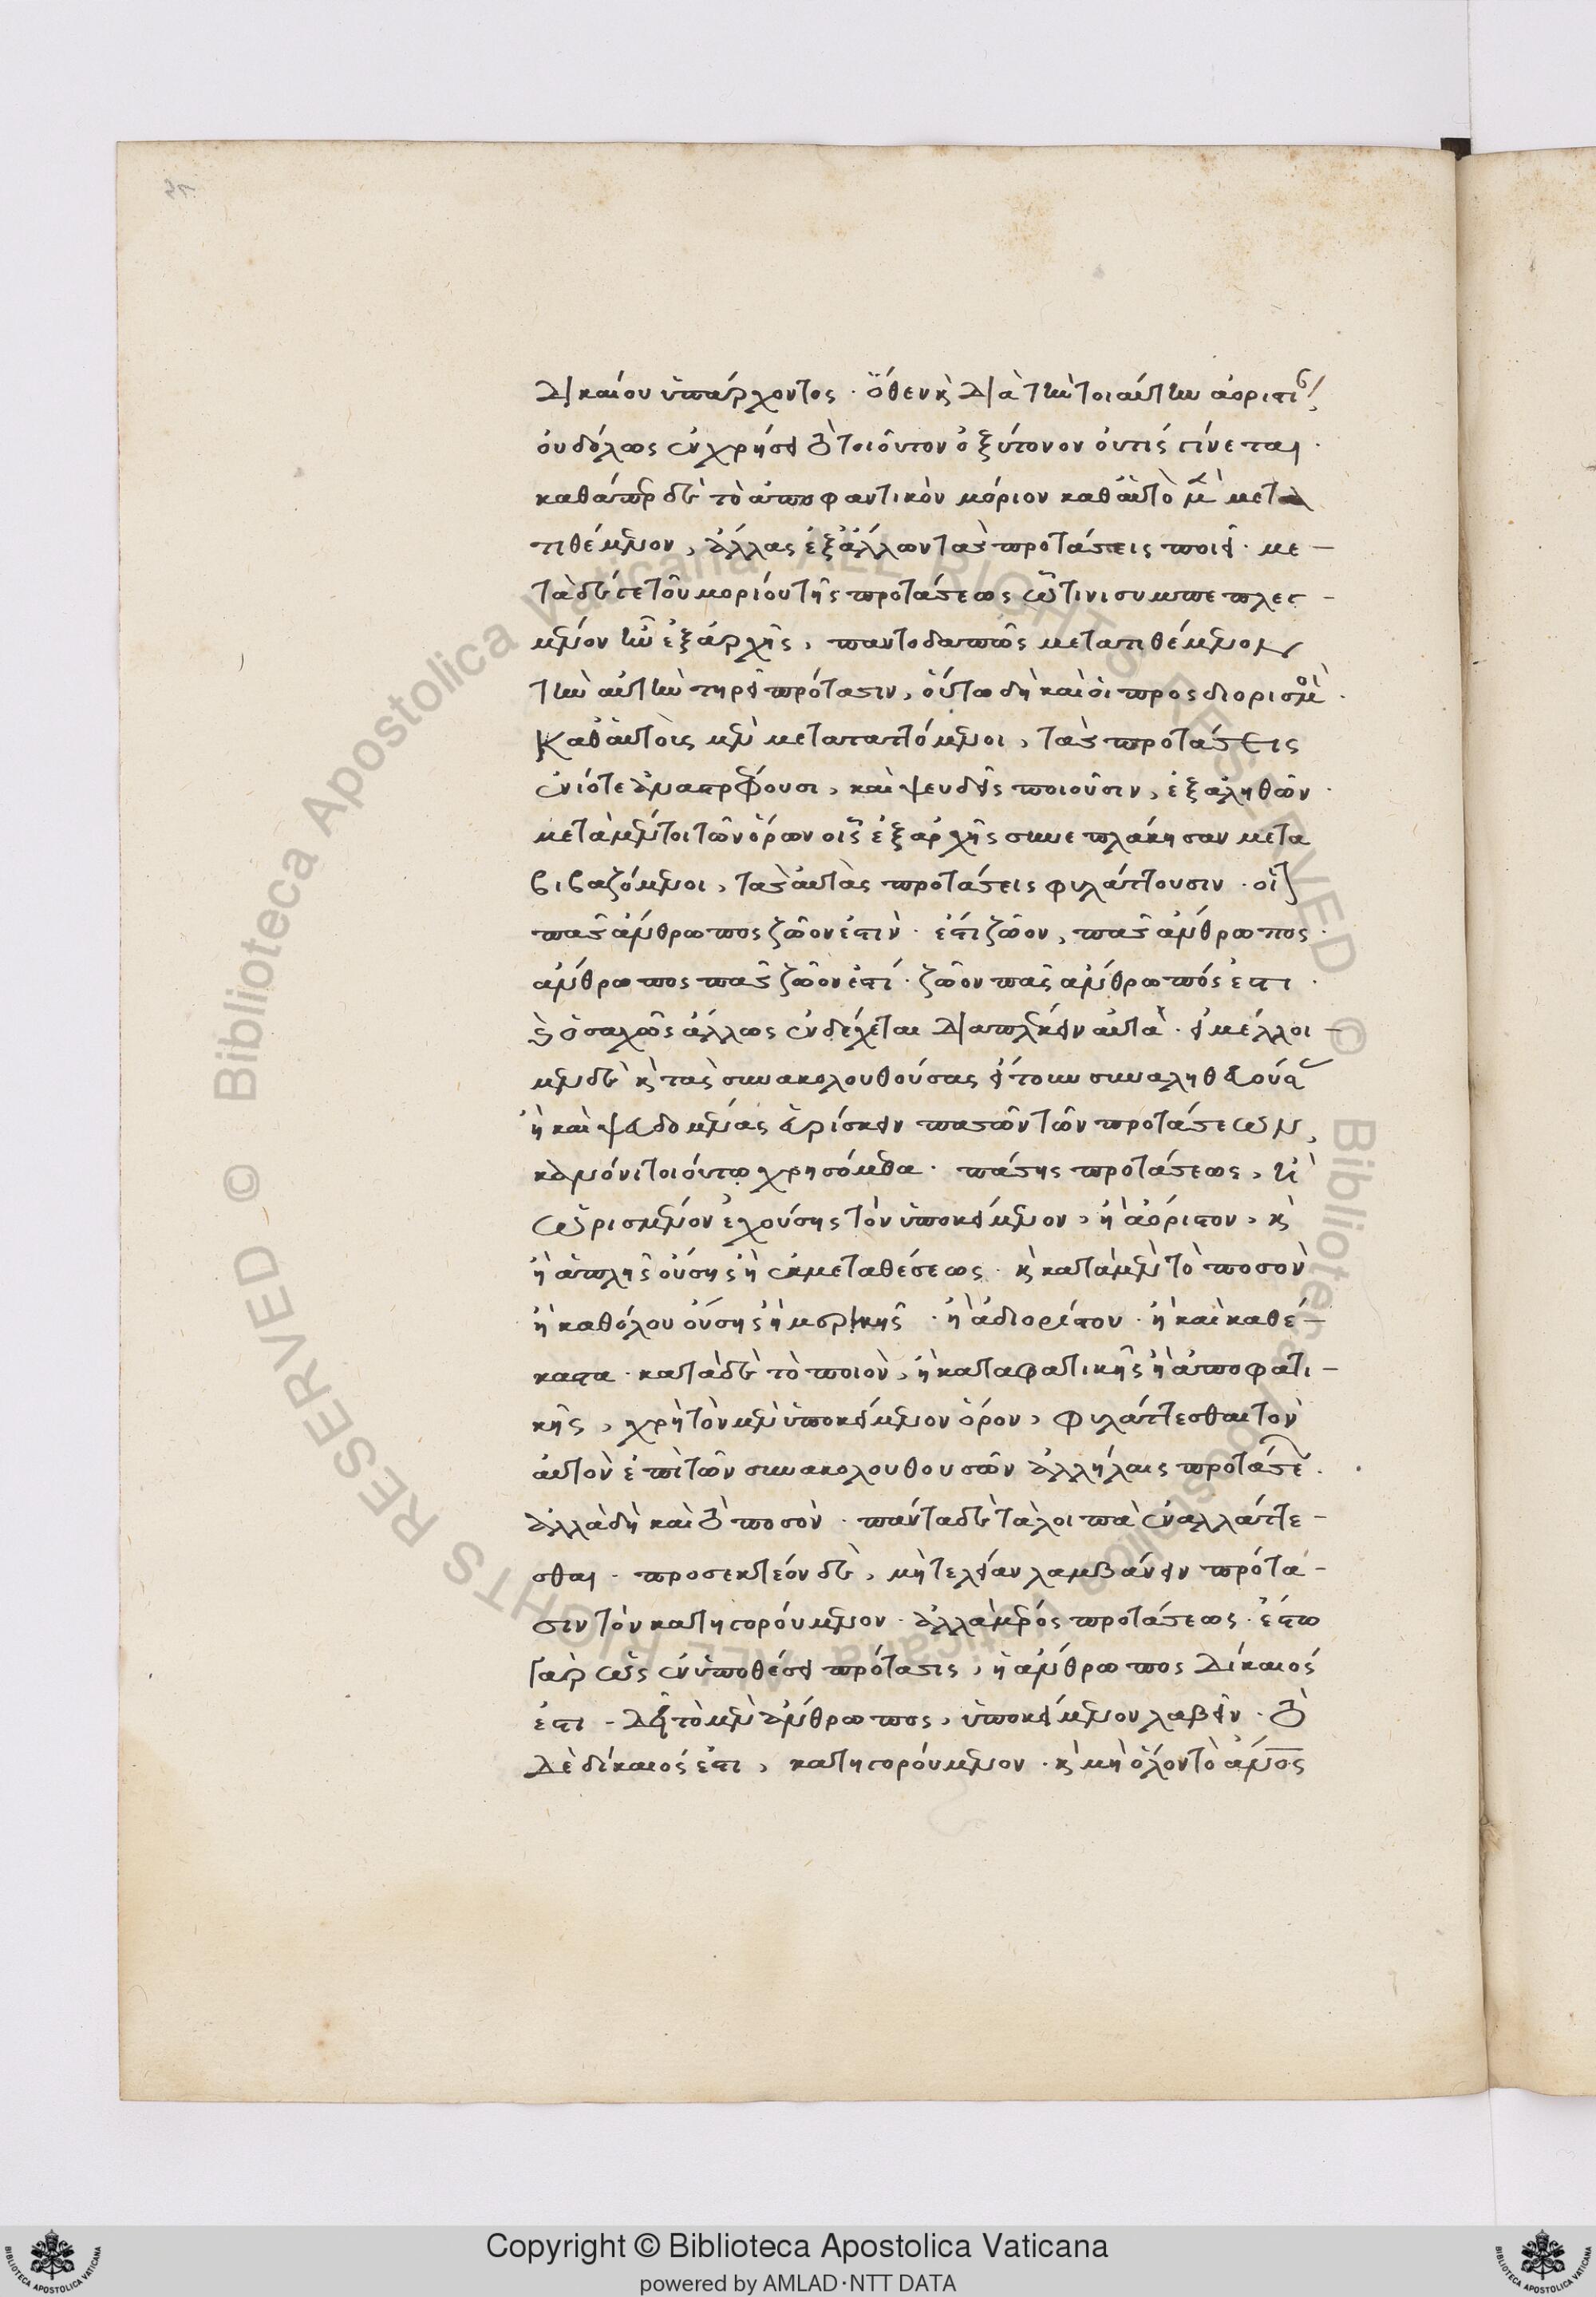 δικαίου ὑπάρχοντος · ὅθεν κ διὰ τὴν τοιαύτην ἀοριστί
οὐδόλως ἐν χρήσει τὸ τοιοῦτον ὀξύτονον οὐτίς γίνεται ·
καθάπερ δὲ τὸ ἀποφαντικὸν μόριον καθ' αὑτὸ μὲν μετα
τιθέμενον, ἄλλας ἐξ ἄλλων τὰς προτάσεις ποιεῖ · με-
τὰ δέ γε τοῦ μορίου τῆς προτάσεως ᾧτινι συμπεπλεγ-
μένον ἦν ἐξ ἀρχῆς, παντοδαπῶς μετατιθέμενον
τὴν αὐτὴν τηρεῖ πρότασιν, οὕτω δὴ καὶ οἱ προσδιορισμοὶ ·
καθ' αὑτοὺς μὲν μεταταττόμενοι, τὰς προτάσεις
ἐνίοτε διαστρέφουσι, καὶ ψευδεῖς ποιοῦσιν, ἐξ ἀληθῶν ·
μετὰ μέντοι τῶν ὅρων οἷς ἐξ ἀρχῆς συνεπλάκησαν μετα
βιβαζόμενοι, τὰς αὐτὰς προτάσεις φυλάττουσιν · οἷον
πᾶς ἄνθρωπος ζῶον ἐστὶν · ἐστὶ ζῶον, πᾶς ἄνθρωπος ·
ἄνθρωπος πᾶς ζῶον ἐστί · ζῶον πᾶς ἄνθρωπός ἐστι ·
καὶ ὁσαχῶς ἄλλως ἐνδέχεται διαπλέκειν αὐτὰ · εἰ μέλλοι-
μεν δὲ κ τὰς συνακολουθούσας ἤτοι συναληθευούσας
ἢ καὶ ψευδομένας εὑρίσκειν πασῶν τῶν προτάσεων,
κανόνι τοιούτω χρησόμεθα · πάσης προτάσεως, ἢ
ὡρισμένον ἐχούσης τὸν ὑποκείμενον, ἢ ἀόριστον, κ
ἢ ἁπλῆς οὔσης ἢ ἐκ μεταθέσεως · κ κατὰ μὲν τὸ ποσὸν
ἢ καθόλου οὔσης ἢ μερικῆς · ἢ ἀδιορίστου · ἢ καὶ καθέ-
καστα · κατὰ δὲ τὸ ποιὸν, ἢ καταφατικῆς ἢ ἀποφατι-
κῆς, χρὴ τὸν μὲν ὑποκείμενον ὅρον, φυλάττεσθαι τὸν
αὐτὸν ἐπὶ τῶν συνακολουθουσῶν ἀλλήλαις προτάσεων ·
ἀλλὰ δὴ καὶ τὸ ποσὸν · πάντα δὲ τὰ λοιπὰ ἐναλλάττε-
σθαι · προσεκτέον δὲ, μὴ τελείαν λαμβάνειν πρότα-
σιν τὸν κατηγορούμενον · ἀλλὰ μέρος προτάσεως · ἔστω
γὰρ ὡς ἐν ὑποθέσει πρότασις, ἡ ἄνθρωπος δίκαιός
ἐστι · δεῖ τὸ μὲν ἄνθρωπος, ὑποκείμενον λαβεῖν · τὸ
δὲ δίκαιός ἐστι, κατηγορούμενον · κ μὴ ὅλον τὸ ἄνος
Copyright © Biblioteca Apostolica Vaticana
powered by AMLAD·NTT DATA